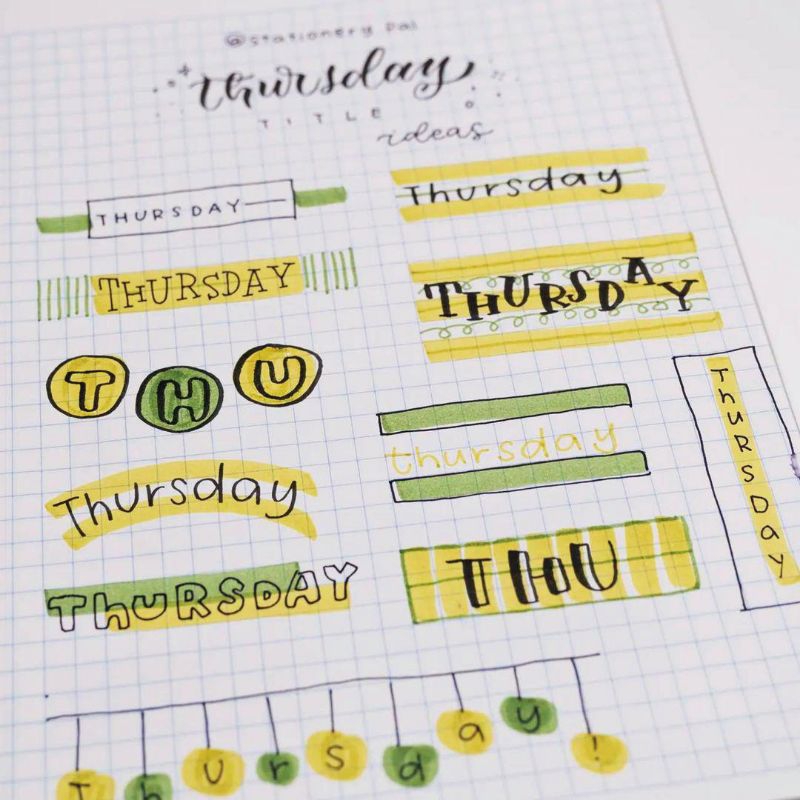 @stationery pal
thursday
TITLE
ideas
THURSDAY
Thursday
THURSDAY
THURSDAY
THU
thursday
ThuRSDay
Thursday
THU
THURSDAY
Thursday!